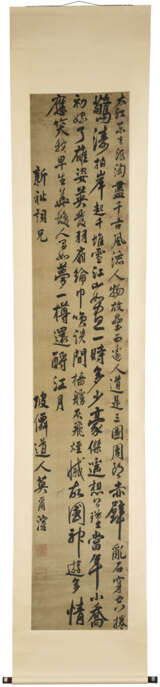 大江東去浪淘盡千古風流人物故壘西邊人道是三國周郎赤壁亂石穿空
驚濤拍岸起千堆雪江山如畫一時多少豪傑遙想公瑾當年小喬
初嫁了雄姿英發羽扇綸巾笑談間檣艣灰飛煙滅故國神遊多情
應笑我早生華髮人間如夢一樽還酹江月
新祉詞兄
坡僊道人英